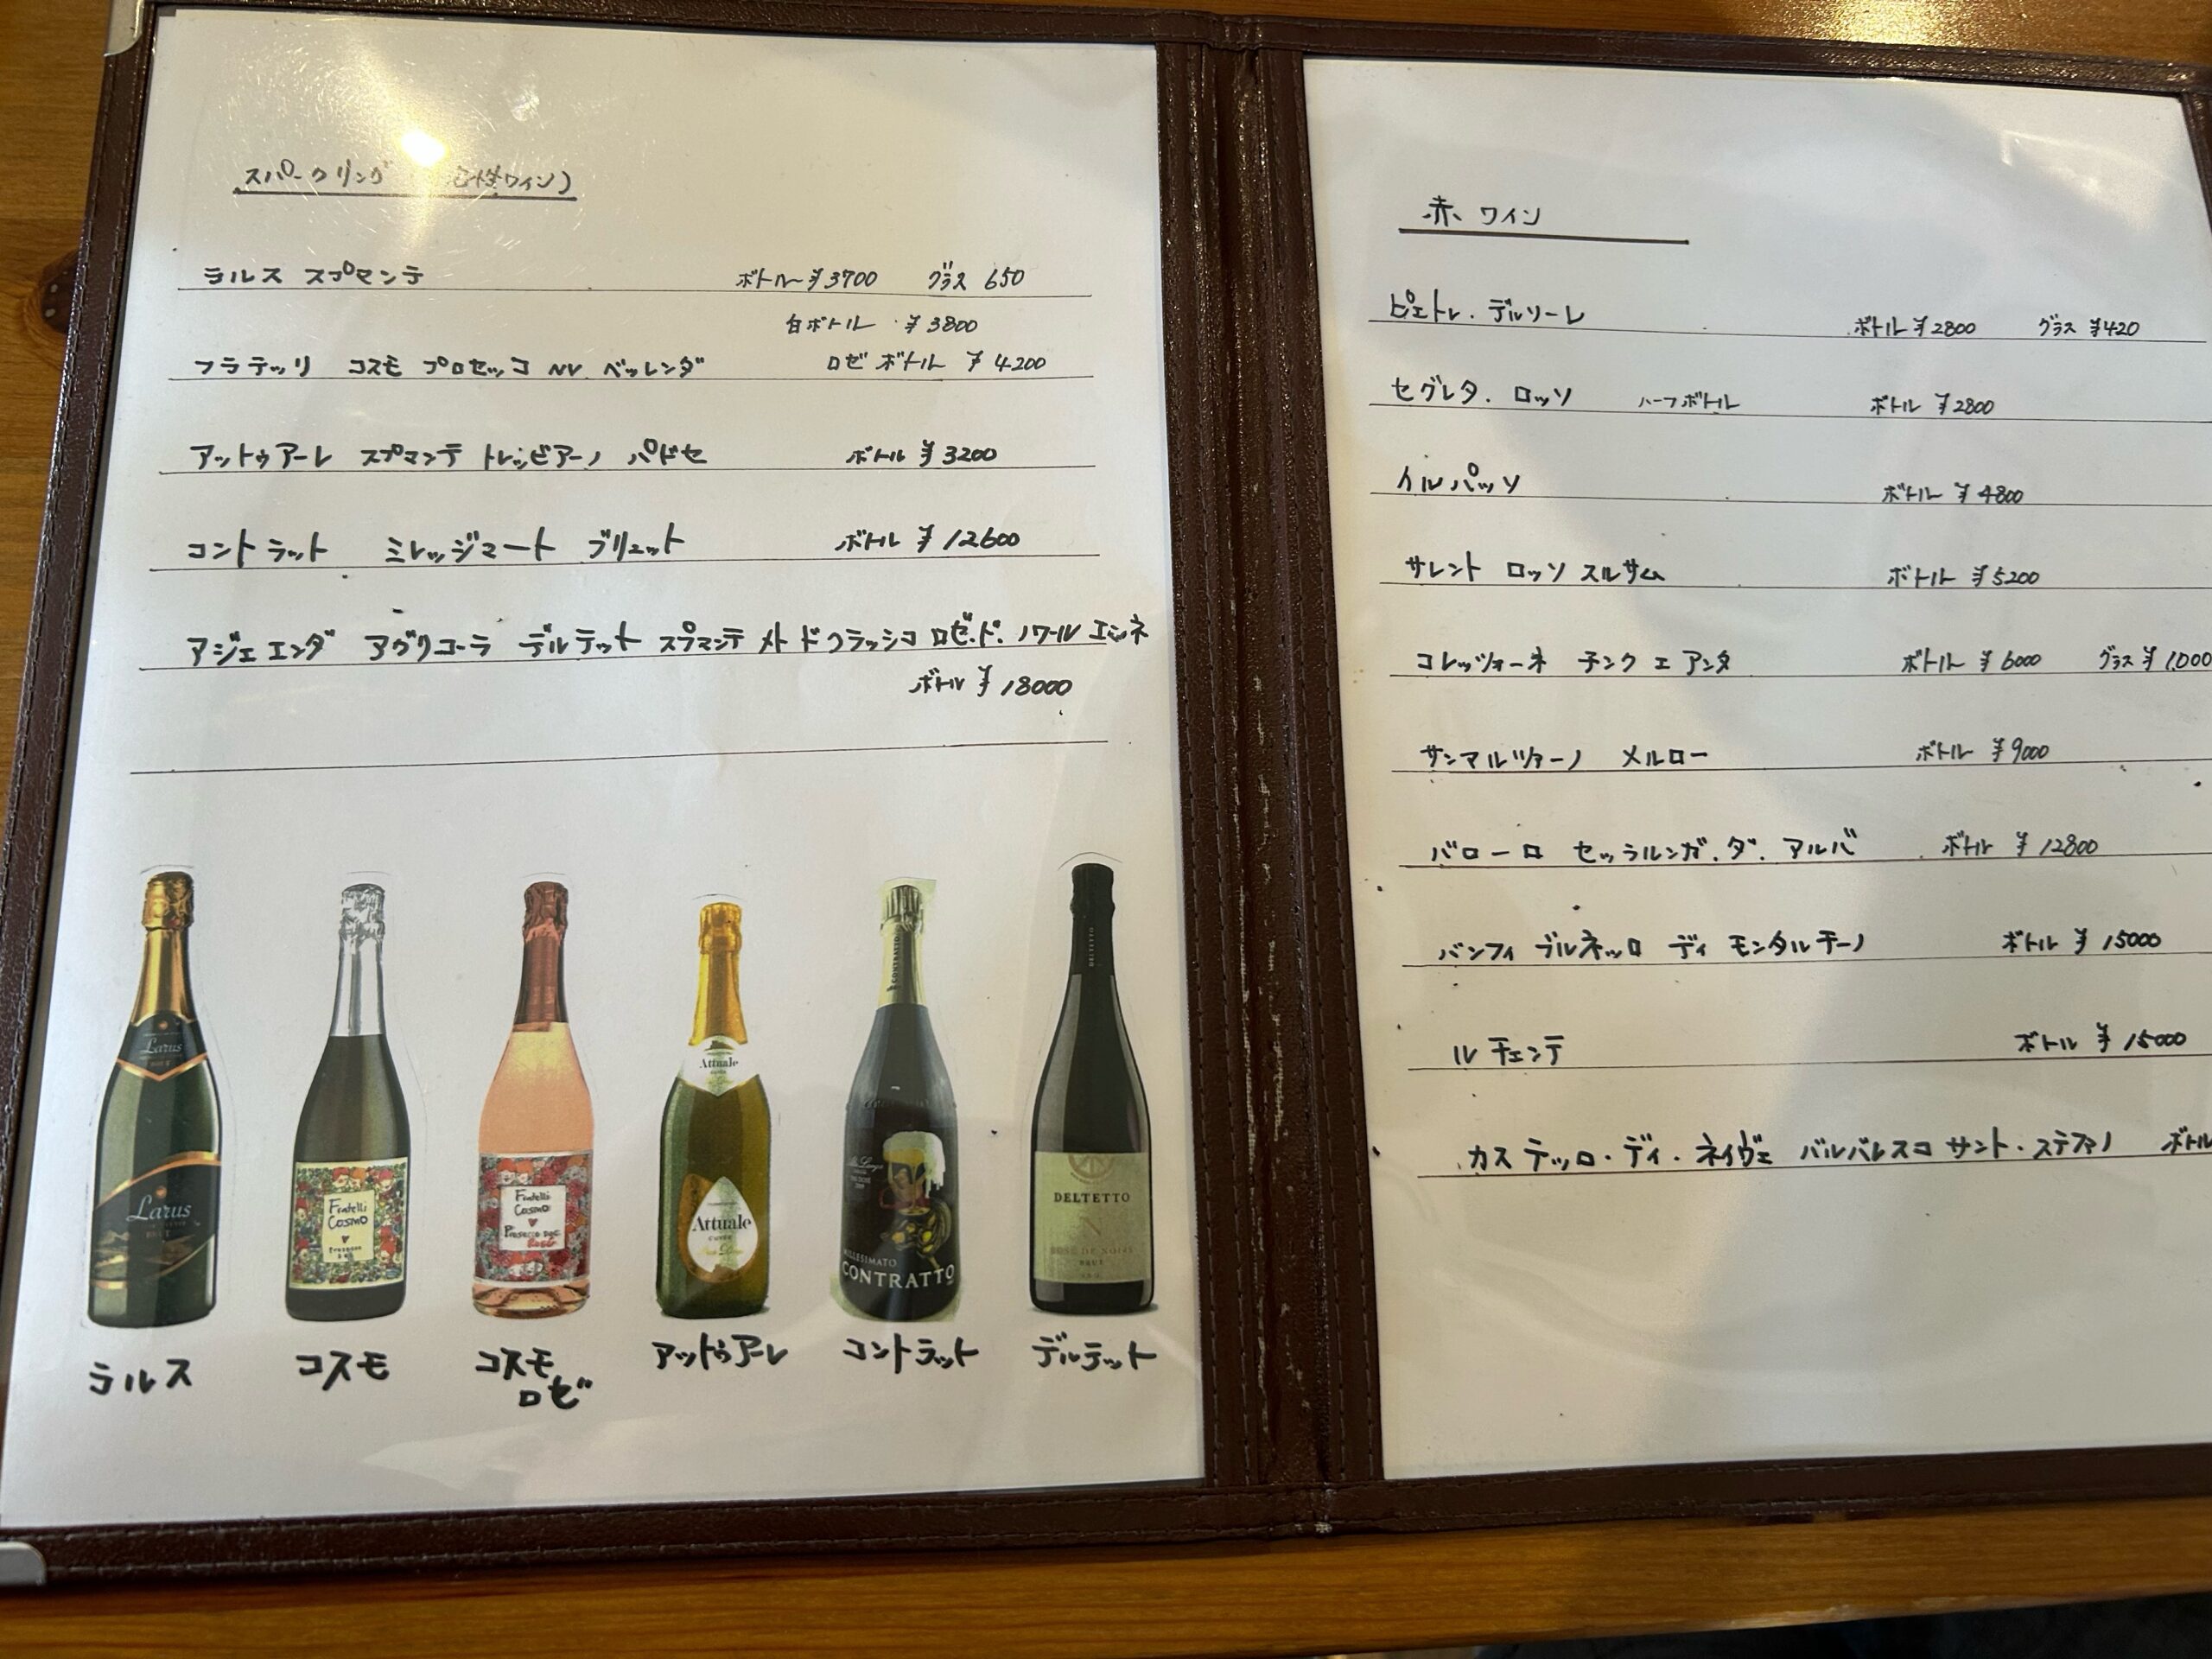 スパークリング ワイン)
ラルス スプマンテ ボトル ¥3700 グラス 650
白ボトル ¥3800
フラテッリ コスモ プロセッコ NV ベッレンダ ロゼ ボトル ¥4200
アットゥアーレ スプマンテ トレッビアーノ パドセ ボトル ¥3200
コントラット ミレッジマート ブリュット ボトル ¥12600
アジェエンダ アグリコーラ デルテット スプマンテ メトドクラッシコ ロゼ.ド.ノワール エンネ
ボトル ¥18000
Larus
Larus
BRUT
ラルス
Fratelli
Cosmo
コスモ
Fratelli
Cosmo
Prosecco DOC
Rosé
コスモ
ロゼ
Attuale
Attuale
CUVÉE
アットゥアーレ
CONTRATTO
MILLESIMATO
CONTRATTO
コントラット
DELTETTO
DELTETTO
ROSÉ DE NOIRS
BRUT
デルテット
赤 ワイン
ピエトレ.デルソーレ ボトル ¥2800 グラス ¥420
セグレタ.ロッソ ハーフボトル ボトル ¥2800
イルパッソ ボトル ¥4800
サレント ロッソ スルサム ボトル ¥5200
コレッツォーネ チンクエ アンタ ボトル ¥6000 グラス ¥1,000
サンマルツァーノ メルロー ボトル ¥9000
バローロ セッラルンガ.ダ.アルバ ボトル ¥12800
バンフィ ブルネッロ ディ モンタルチーノ ボトル ¥15000
ルチェンテ ボトル ¥15000
カステッロ・ディ・ネイヴェ バルバレスコ サント・ステファノ ボトル